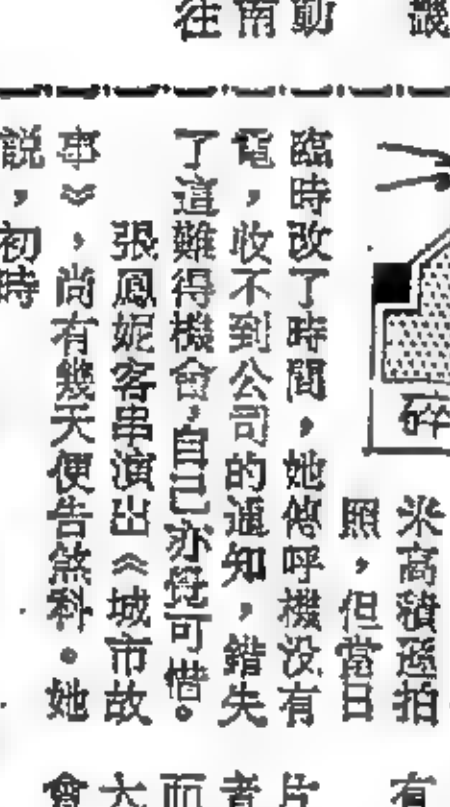 畿
勤
南
往
碎
米高積遜拍
照，但當日
臨時改了時間，她傳呼機没有
電，收不到公司的通知，錯失
了這難得機會，自己亦覺可惜。
張鳳妮客串演出《城市故
事》，尚有幾天便告煞科。她
説，初時
有
片
者
而
大
會